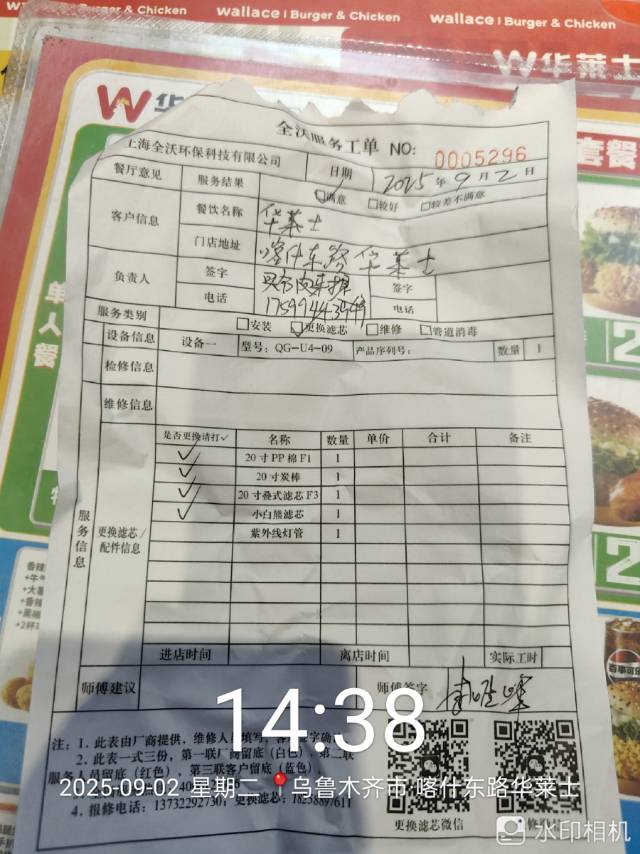 wallace | Burger & Chicken wallace | Burger & Chicken
W 华莱士
W 华
套餐
单人餐
全沃服务工单 NO: 0005296
上海全沃环保科技有限公司 日期 2025 年 9 月 2 日
餐厅意见 服务结果 满意 较好 较差不满意
客户信息 餐饮名称 华莱士
门店地址 喀什东路华莱士
负责人 签字 签字
电话 电话
服务类别 安装 更换滤芯 维修 管道消毒
设备信息 设备一 型号: QG-U4-09 产品序列号: 数量 1
检修信息
维修信息
服务信息
更换滤芯/配件信息
是否更换请打✓ 名称 数量 单价 合计 备注
✓ 20寸PP棉F1 1
✓ 20寸炭棒 1
✓ 20寸叠式滤芯F3 1
✓ 小白熊滤芯 1
紫外线灯管 1
进店时间 离店时间 实际工时
师傅建议 师傅签字
14:38
注: 1. 此表由厂商提供, 维修人
2. 此表一式三份, 第一联厂商留底(白色), 第二联
服务人员留底(红色), 第三联客户留底(蓝色),
2025-09-02 星期二 乌鲁木齐市·喀什东路华莱士
4. 报修电话: 13732292730, 更换滤芯: 18238897611
更换滤芯微信
水印相机